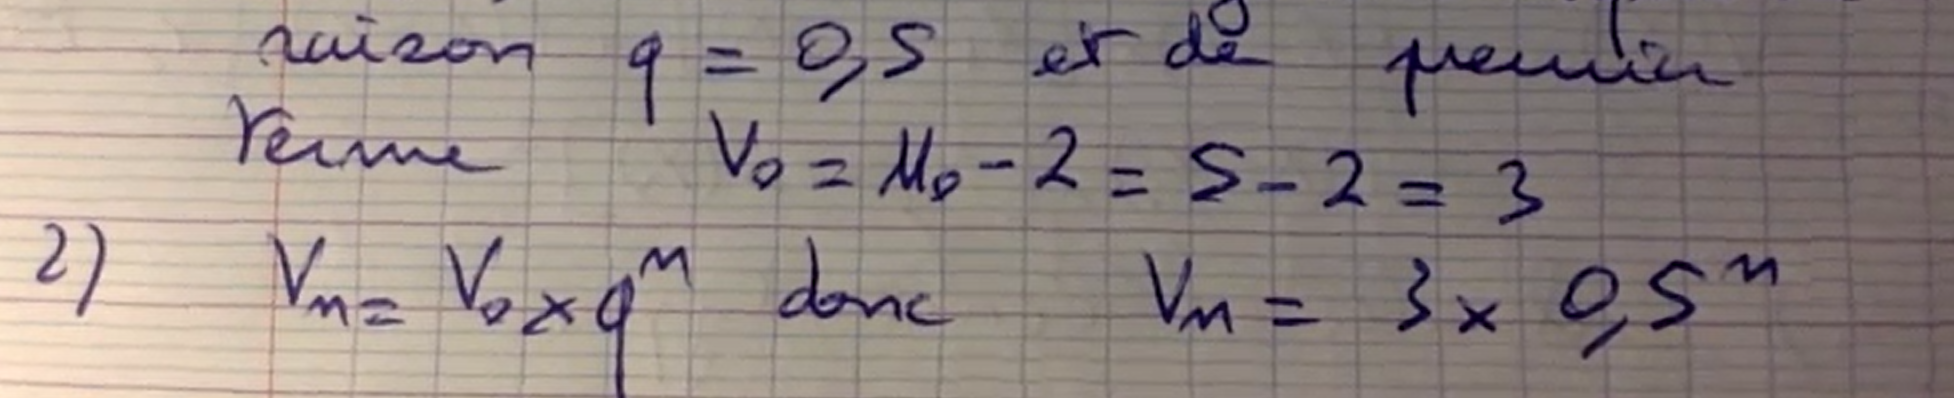 raison q = 0,5 et de premier
terme V₀ = U₀ - 2 = 5 - 2 = 3
2) Vₙ = V₀ × qⁿ donc Vₙ = 3 × 0,5ⁿ